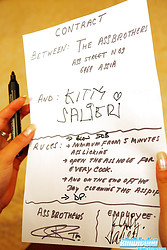 CONTRACT
BETWEEN: THE ASSBROTHERS
ASS STREET N 69
6969 ASSVILLE
AND: KITTY
SALIERI
RULES: → BLOW JOB
→ MINIMUM FROM 5 MINUTES
ASSLICKING
→ OPEN THE ASSHOLE FOR
EVERY COCK.
→ AND ON THE END OFF THE
DAY CLEANING THE ASSPIPE
→ DP
ASSBROTHERS
EMPLOYEE: